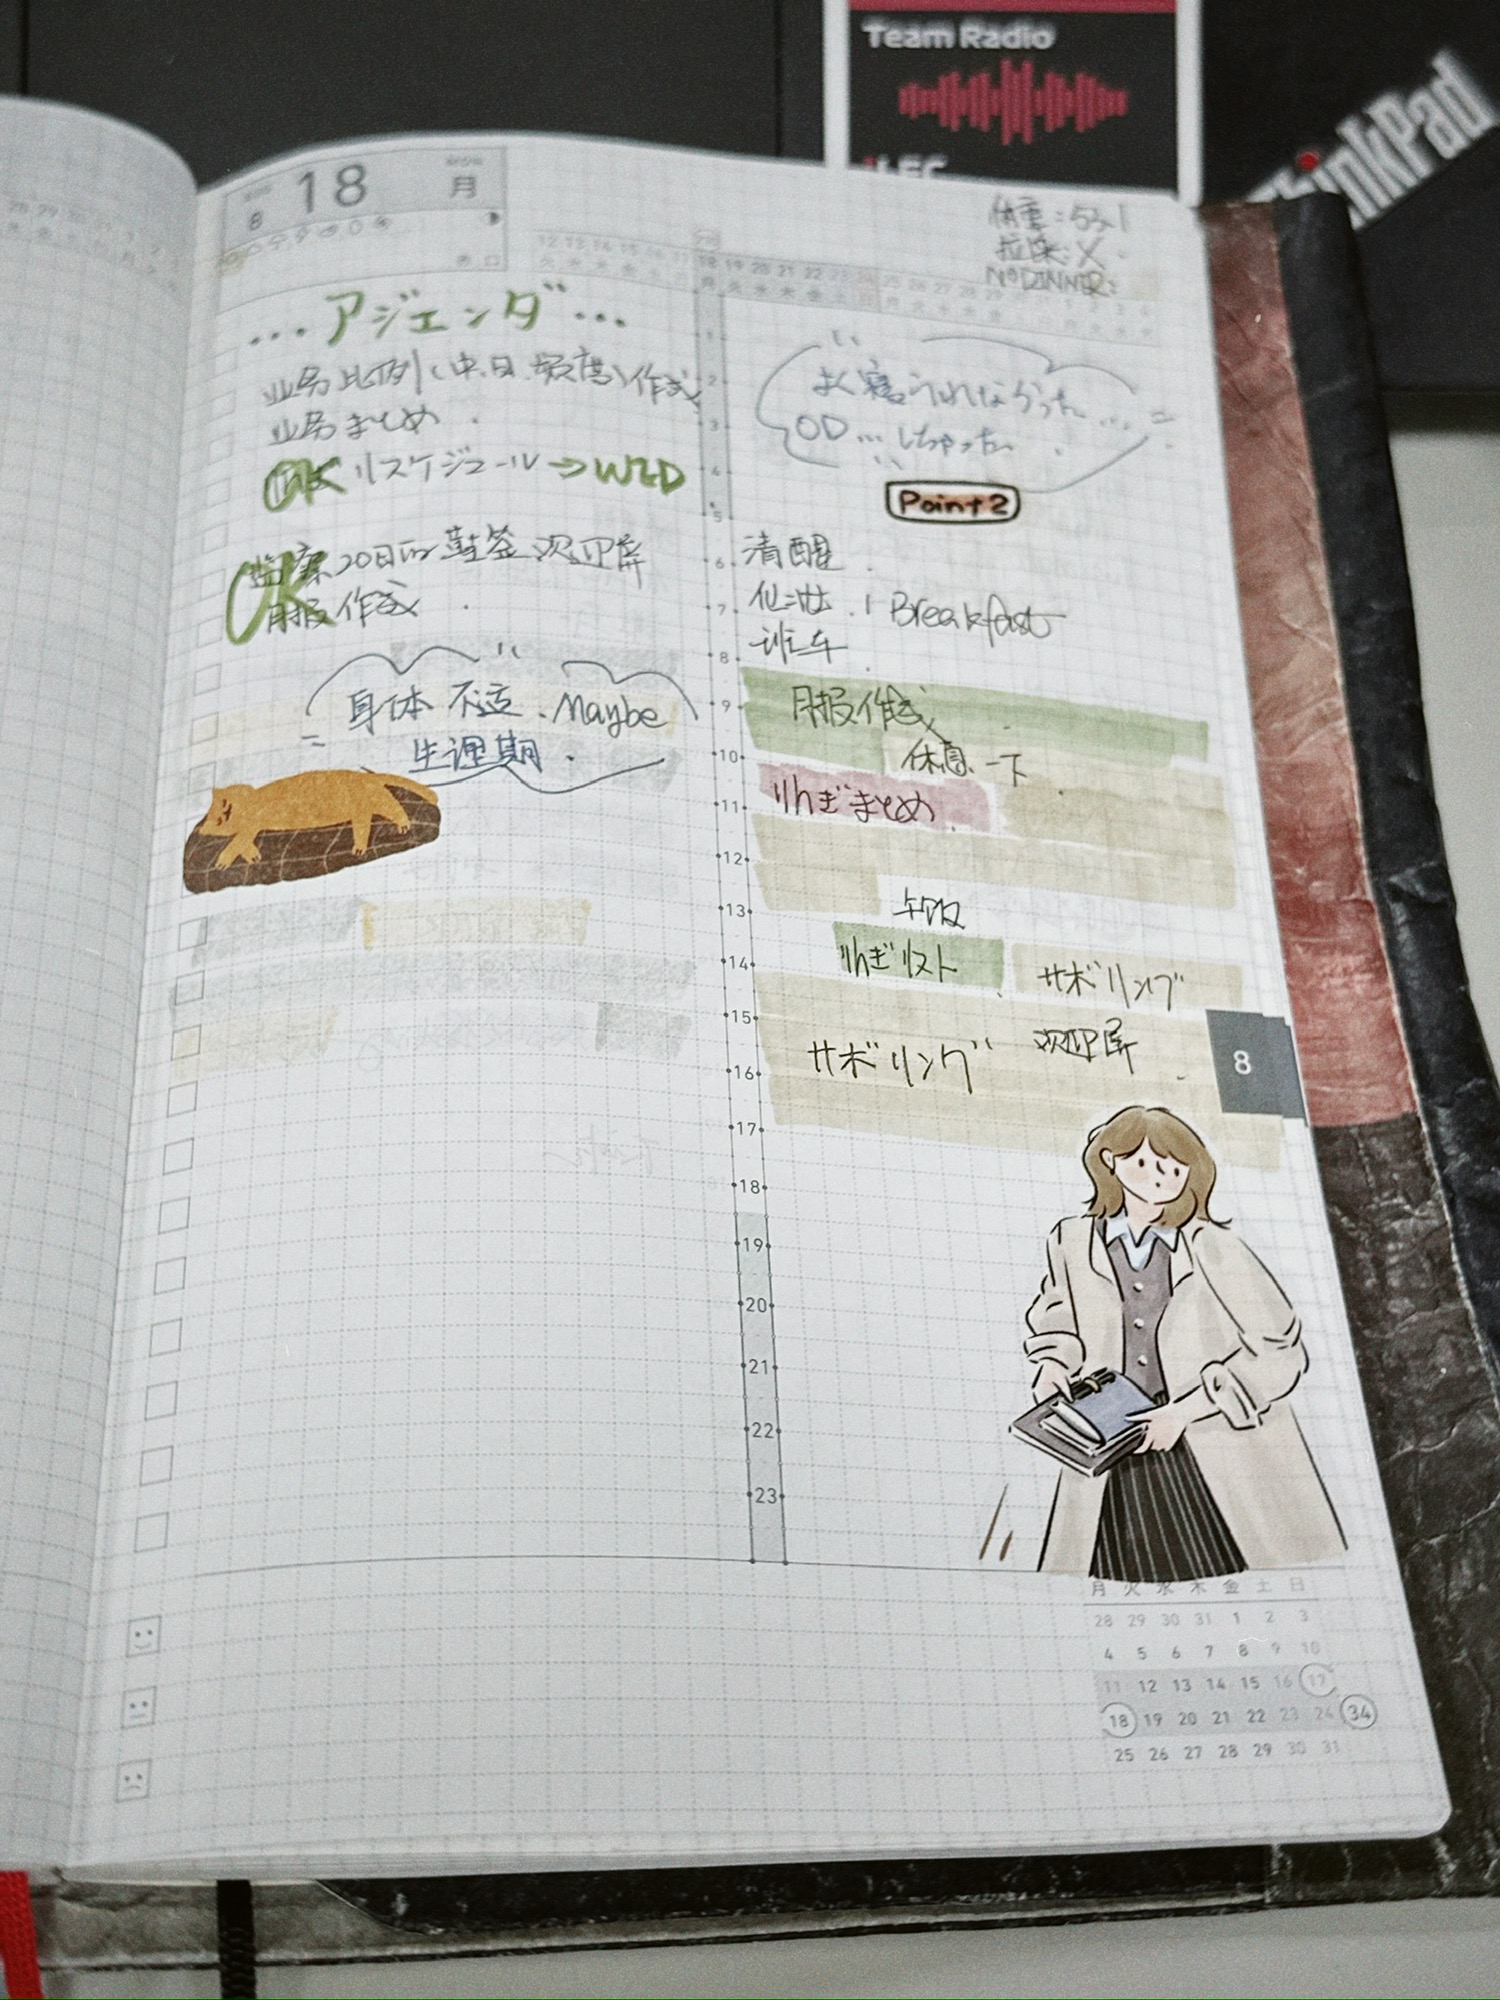 Team Radio
ThinkPad
8 18 月
体重：53.1
拉尿：X
NO DINNER：
... アジェンダ ...
业务比例（中.日.頻度）作成
业务まとめ.
リスケジュール → WED
OK
20日 in 欢迎屏
OK
月报作成.
身体不适. Maybe
生理期.
よく寝られなかった...
OD... しちゃった.
Point 2
清醒.
化妆. Breakfast
班车
月报作成
休息一下.
りんぎまとめ.
午饭
りんぎリスト
サボリング
サボリング
欢迎屏
8
1
2
3
4
5
6
7
8
9
10
11
12
13
14
15
16
17
18
19
20
21
22
23
月 火 水 木 金 土 日
28 29 30 31 1 2 3
4 5 6 7 8 9 10
11 12 13 14 15 16 17
18 19 20 21 22 23 24 34
25 26 27 28 29 30 31